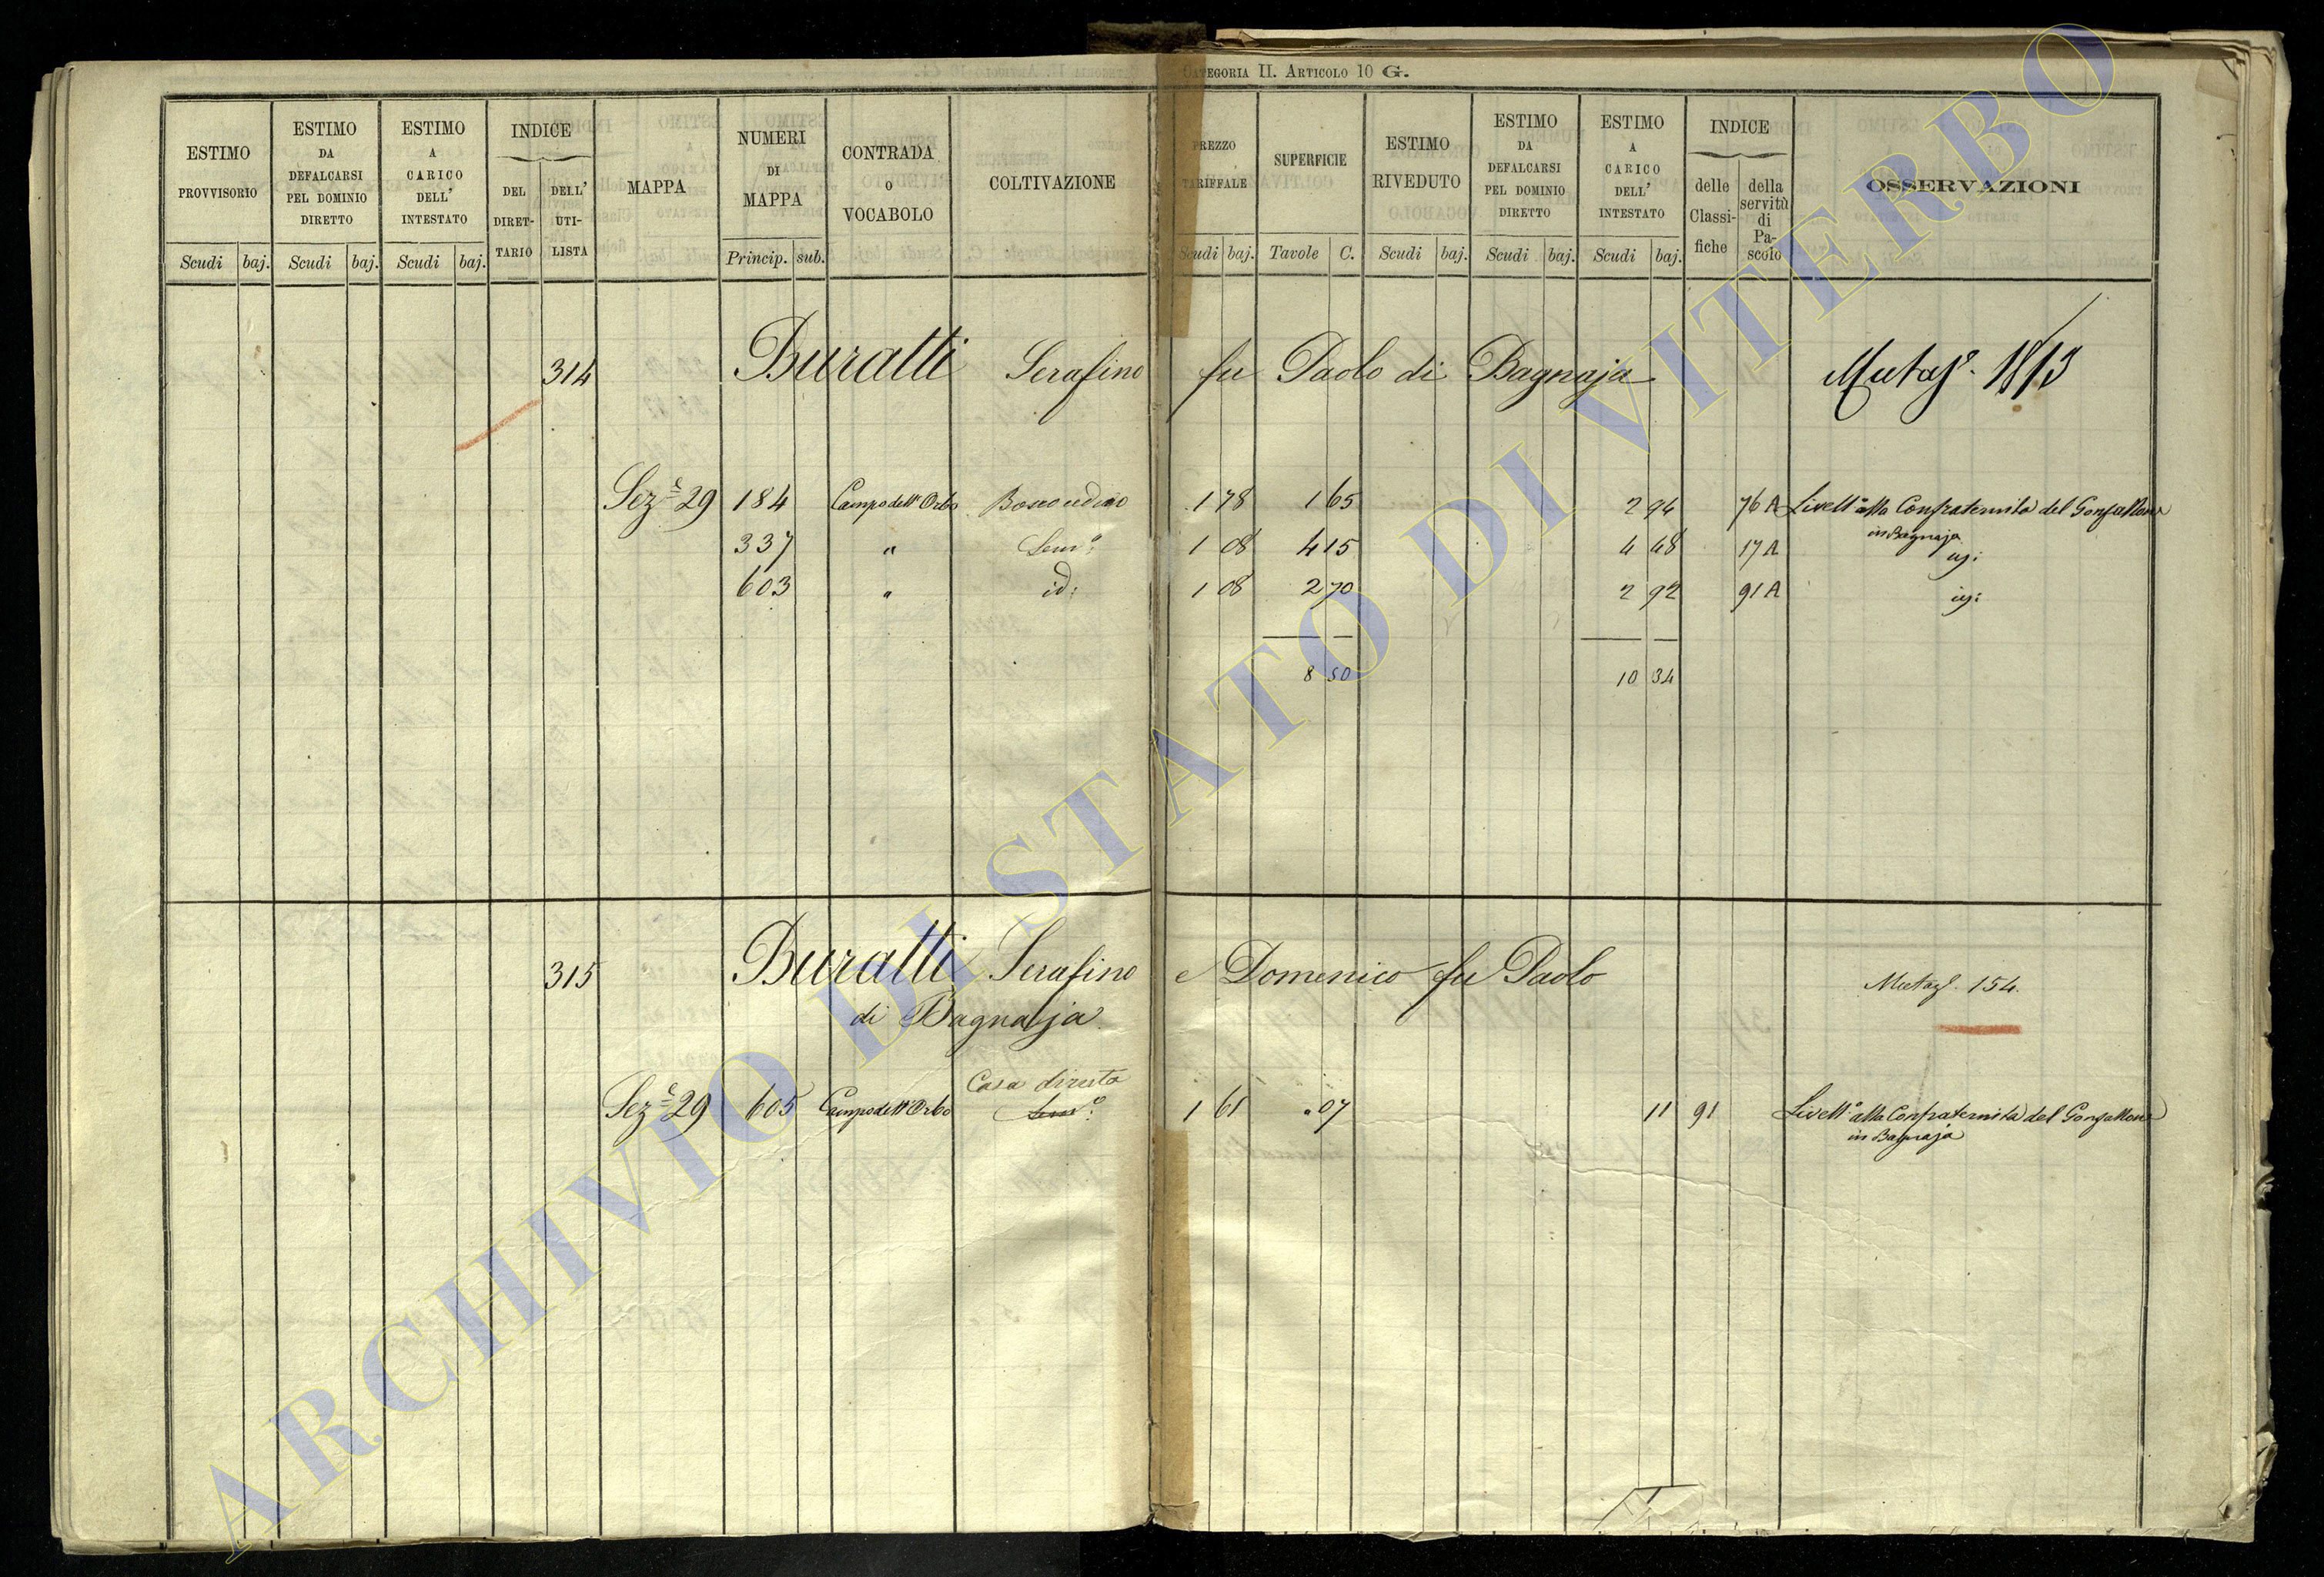 CATEGORIA II. ARTICOLO 10 G.
ESTIMO PROVVISORIO
Scudi baj.
ESTIMO DA DEFALCARSI PEL DOMINIO DIRETTO
Scudi baj.
ESTIMO A CARICO DELL' INTESTATO
Scudi baj.
INDICE
DEL DIRET-TARIO
DELL' UTI-LISTA
MAPPA
NUMERI DI MAPPA
Princip. sub.
CONTRADA O VOCABOLO
COLTIVAZIONE
PREZZO TARIFFALE
Scudi baj.
SUPERFICIE
Tavole C.
ESTIMO RIVEDUTO
Scudi baj.
ESTIMO DA DEFALCARSI PEL DOMINIO DIRETTO
Scudi baj.
ESTIMO A CARICO DELL' INTESTATO
Scudi baj.
INDICE
delle Classi-fiche
della servitù di Pa-scolo
OSSERVAZIONI
314 Buratti Serafino fu Paolo di Bagnaja
Sez.e 29 184 Campo dell'Orbo 1 78 1 65 2 94 76 A Livell.o alla Confraternita del Gonfallone
in Bagnaja
337 " Sem.o 1 08 4 15 4 48 17 A
603 " id: 1 08 2 70 2 92 91 A
8 50 10 34
315 Buratti Serafino e Domenico fu Paolo Mutaz. 154.
di Bagnaja
Casa diruta
Sez.e 29 605 Campo dell'Orbo Sem.o 1 61 " 07 11 91 Livell.o alla Confraternita del Gonfallone
in Bagnaja
ARCHIVIO DI STATO DI VITERBO